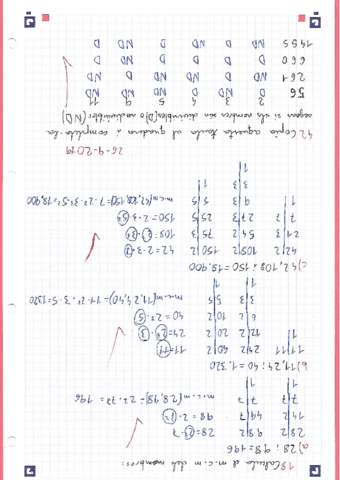 18 Calcula el m.c.m dels nombres:
a) 28 i 98=196
28 2 98 2 28=2²·7
14 2 49 7 98=2·7²
7 7 7 7 m.c.m (28,98)=2²·7²=196
1 1
b) 11, 24 i 40=1.320
11 11 24 2 40 2 11=11
1 12 2 20 2 24=2³·3
6 2 10 2 40=2³·5
3 3 5 5 m.c.m (11,24,40)=11·2³·3·5=1320
1 1
c) 42, 108 i 150=18.900
42 2 108 2 150 2 42=2·3·7
21 3 54 2 75 3 108=2²·3³
7 7 27 3 25 5 150=2·3·5²
1 9 3 5 5 m.c.m (42,108,150)=7·2²·3³·5²=18.900
3 3 1
1
26-9-2019
42. Copia aquesta taula al quadern i completa-la
segons si els nombres són divisibles (D) o no divisibles (ND)
2 3 4 5 9 11
56 D ND D ND ND ND
261 ND D ND ND D ND
660 D D D D ND D
1455 ND D ND D ND D